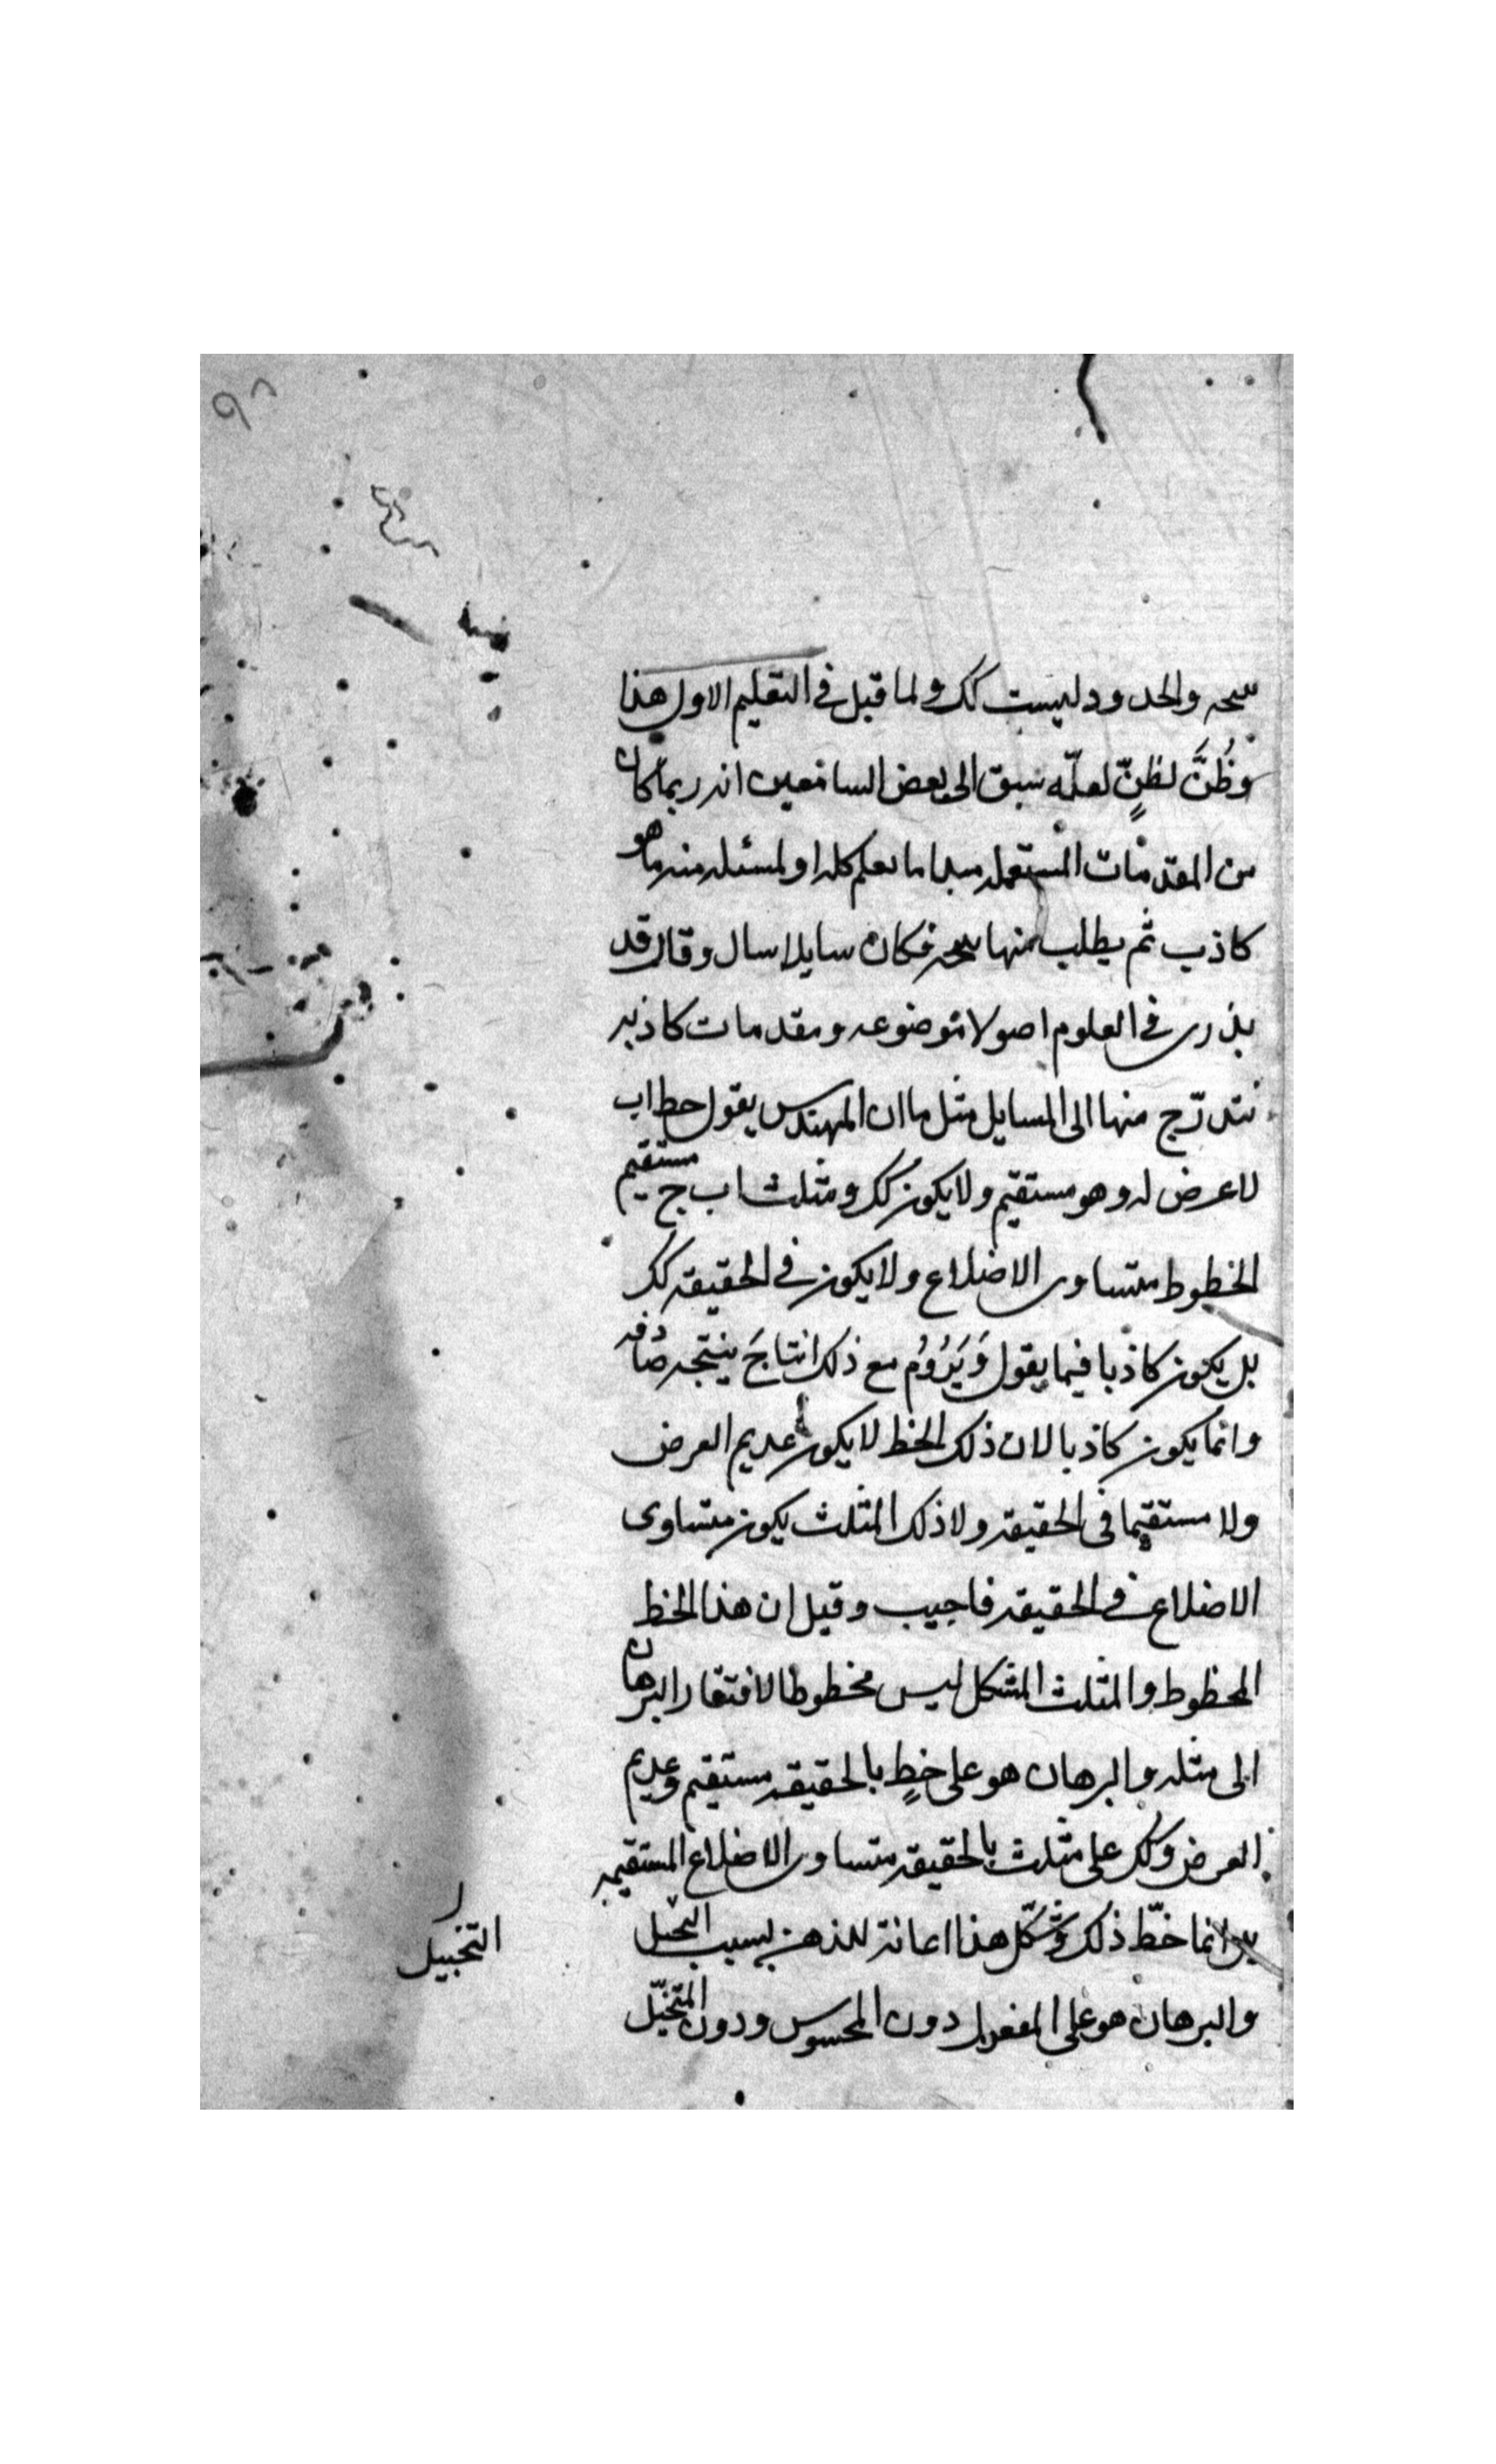 نتيجه والحدود ليست كك ولما قيل فى التعليم الاول هذا
وظُنَّ لظنٍّ لعلّه سبق الى بعض السامعين انه ربما كان
من المقدمات المستعمله مبدا ما يعلم كله او لمسئله منه ما هو
كاذب ثم يطلب منها نتيجه فكان سايلا سال وقال قد
يذرى فى العلوم اصولا موضوعه ومقدمات كاذبه
نتدرّج منها الى المسايل مثل ما ان المهندس يقول خط اب
لا عرض له وهو مستقيم ولا يكون كك ومثلث اب ج مستقيم
الخطوط متساوى الاضلاع ولا يكون فى الحقيقه كك
بل يكون كاذبا فيما يقول وَيَرُوُم مع ذلك انتاجَ نتيجه صادقه
وانما يكون كاذبا لان ذلك الخط لا يكون عديم العرض
ولا مستقيما فى الحقيقه ولا ذلك المثلث يكون متساوى
الاضلاع فى الحقيقه فاجيب وقيل ان هذا الخط
المخطوط والمثلث المشكل ليس مخطوطا لافتقار البرهان
الى مثله والبرهان هو على خطٍ بالحقيقه مستقيم وعديم
العرض وكك على مثلث بالحقيقه متساوى الاضلاع المستقيمه
بل انما خطّ ذلك وشكّل هذا اعانة للذهن بسبب التخيل
التخييل
والبرهان هو على المعقول دون المحسوس ودون المتخيّل